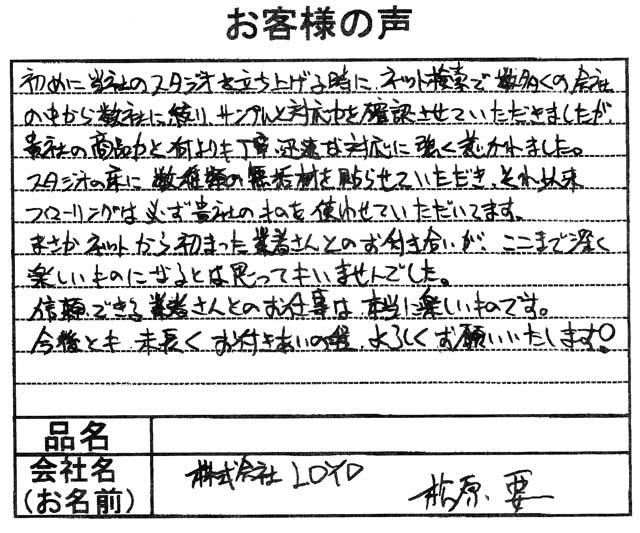 お客様の声
初めに当社のスタジオを立ち上げる時に、ネット検索で数多くの会社
の中から数社に絞り、サンプルと対応力を確認させていただきましたが、
貴社の商品力と何よりも丁寧、迅速な対応に強く惹かれました。
スタジオの床に数種類の無垢材を貼らせていただき、それ以来
フローリングは必ず貴社のものを使わせていただいてます。
まさかネットから初まった業者さんとのお付き合いが、ここまで深く
楽しいものになるとは思ってもいませんでした。
信頼できる業者さんとのお仕事は、本当に楽しいものです。
今後とも末長くお付きあいの程、よろしくお願いいたします!
品名
会社名
(お名前)
株式会社 LOYD
松原 要